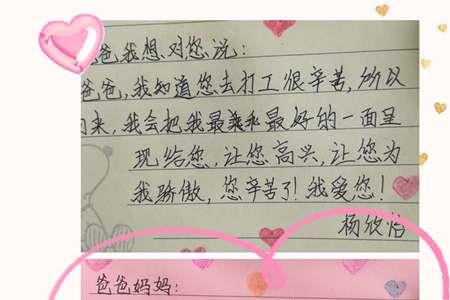 爸爸,我想对您说:
爸爸,我知道您去打工很辛苦,所以
来,我会把我最乖和最好的一面呈
现给您,让您高兴,让您为
我骄傲,您辛苦了!我爱您!
杨欣怡
爸爸妈妈: